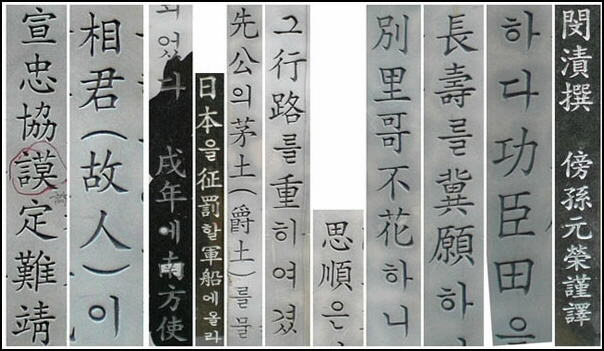 宣忠協謨定難靖
相君(故人)이
되었다 戌年에 南方使
日本을 征罰할 軍船에 올라
先公의 茅土(爵土)를 물
그 行路를 重히 여겼
思順은
別里哥不花하니
長壽를 冀願하
하다 功臣田
閔漬撰 傍孫元榮謹譯